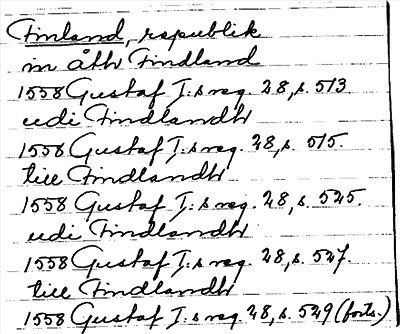 Finland, republik
in åth Findland
1558 Gustaf I:s reg. 28, s. 513
udi Findlandh
1558 Gustaf I:s reg. 28, s. 515.
till Findlandh
1558 Gustaf I:s reg. 28, s. 525.
udi Findlandh
1558 Gustaf I:s reg. 28, s. 527.
till Findlandh
1558 Gustaf I:s reg. 28, s. 529 (forts.)